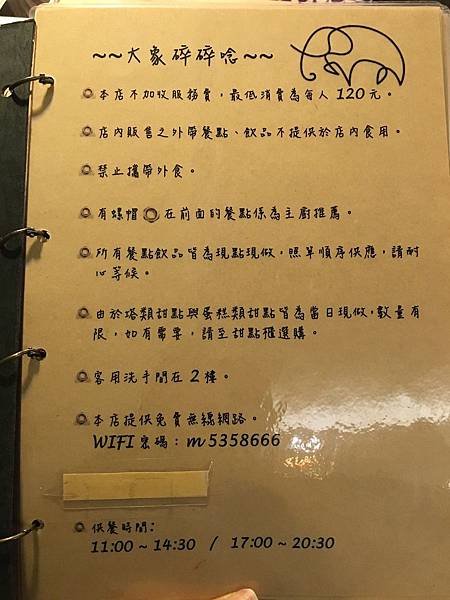 ~~大象碎碎唸~~
本店不加收服務費，最低消費為每人 120 元。
店內販售之外帶餐點、飲品不提供於店內食用。
禁止攜帶外食。
有螺帽 在前面的餐點係為主廚推薦。
所有餐點飲品皆為現點現做，照單順序供應，請耐
心等候。
由於塔類甜點與蛋糕類甜點皆為當日現做，數量有
限，如有需要，請至甜點櫃選購。
客用洗手間在 2 樓。
本店提供免費無線網路。
WIFI 密碼：m5358666
供餐時間：
11:00 ~ 14:30 / 17:00 ~ 20:30